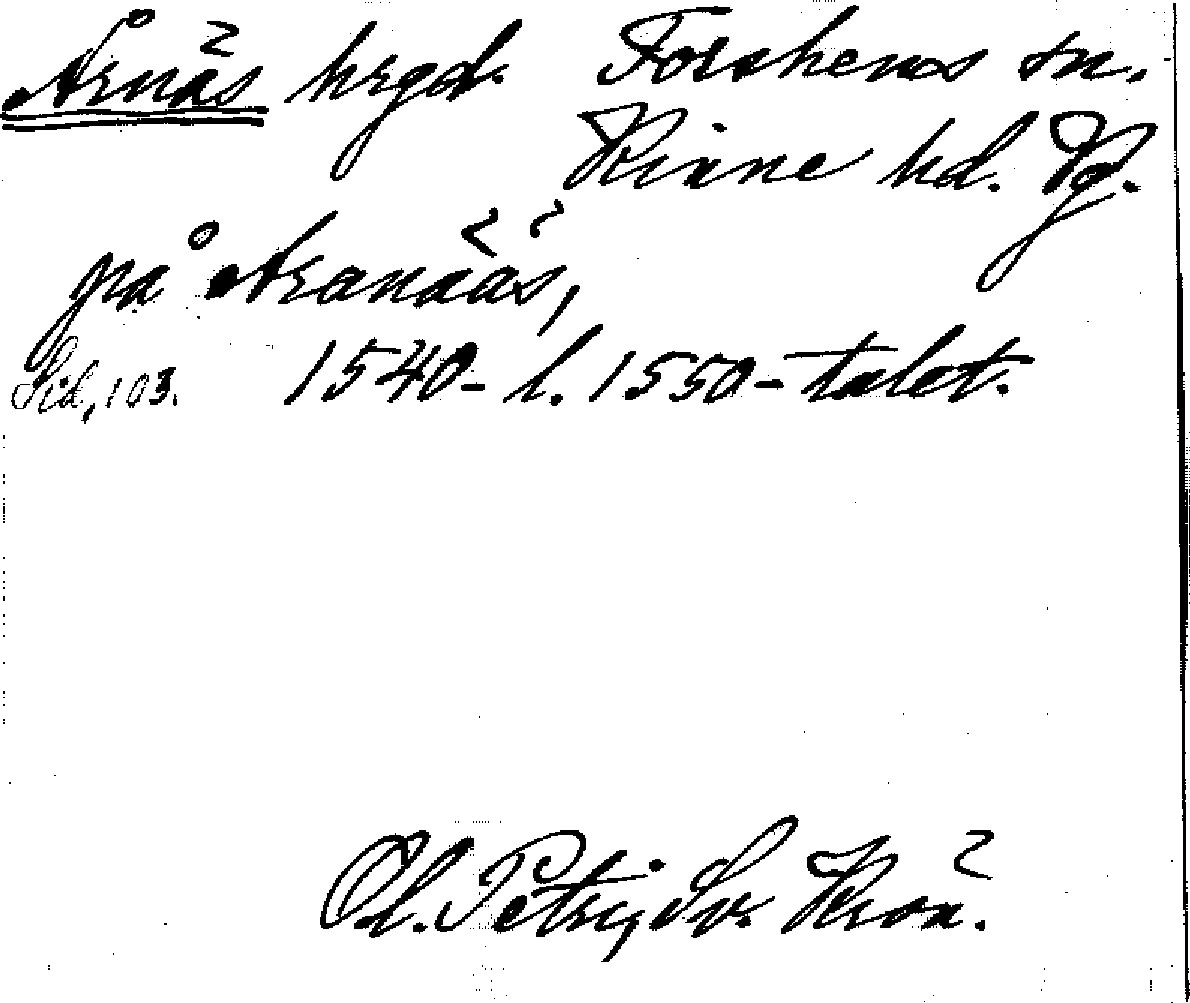 Årnäs hrgd. Forshems sn.
Kinne hd. Vg.
på Aranääs,
Sid. 103. 1540- l. 1550-talet.
Ol. Petri, Sv. Krön.